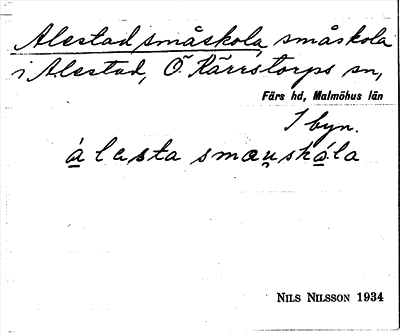 Alestad småskola, småskola
i Alestad, Ö. Kärrstorps sn,
Färs hd, Malmöhus län
I byn.
álasta smæu̯skǻla
NILS NILSSON 1934